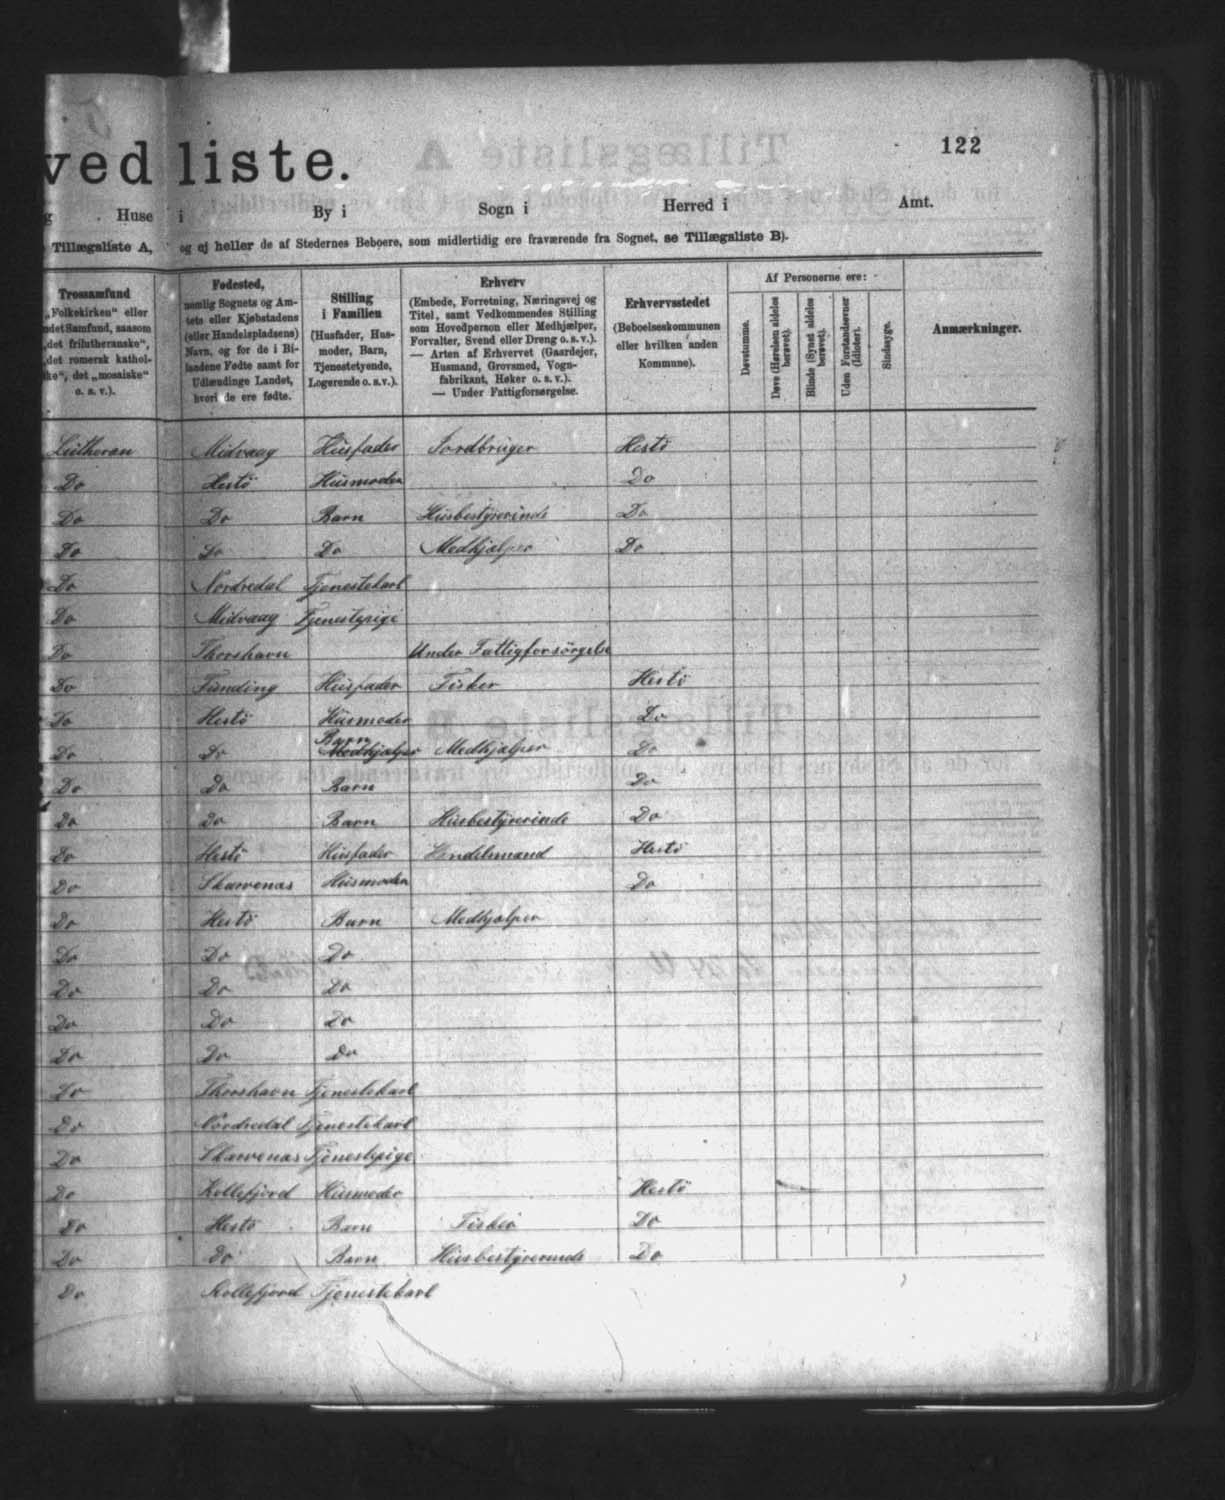 ved liste.
122
g Huse i By i Sogn i Herred i Amt.
Tillægsliste A, og ej heller de af Stedernes Beboere, som midlertidig ere fraværende fra Sognet, se Tillægsliste B).
Trossamfund
„Folkekirken“ eller
ndet Samfund, saasom
„det frilutheranske“,
„det romersk kathol-
ke“, det „mosaiske“
o. s. v.).
Fødested,
nemlig Sognets og Am-
tets eller Kjøbstadens
(eller Handelspladsens)
Navn, og for de i Bi-
landene Fødte samt for
Udlændinge Landet,
hvori de ere fødte.
Stilling
i Familien
(Husfader, Hus-
moder, Barn,
Tjenestetyende,
Logerende o. s. v.).
Erhverv
(Embede, Forretning, Næringsvej og
Titel, samt Vedkommendes Stilling
som Hovedperson eller Medhjælper,
Forvalter, Svend eller Dreng o. s. v.).
— Arten af Erhvervet (Gaardejer,
Husmand, Grovsmed, Vogn-
fabrikant, Høker o. s. v.).
— Under Fattigforsørgelse.
Erhvervsstedet
(Beboelseskommunen
eller hvilken anden
Kommune).
Af Personerne ere:
Døvstumme.
Døve (Hørelsen aldeles
berøvet).
Blinde (Synet aldeles
berøvet).
Uden Forstandsevner
(Idioter).
Sindssyge.
Anmærkninger.
Lutheran Midvaag Husfader Jordbruger Hestö
Do Hestö Husmoder Do
Do Do Barn Husbestyrerinde Do
Do Do Do Medhjælper Do
Do Nordredal Tjenestekarl
Do Midvaag Tjenestepige
Do Thorshavn Under Fattigforsörgelse
Do Funding Husfader Fisker Hestö
Do Hestö Husmoder Do
Barn
Do Do Medhjælper Medhjælper Do
Do Do Barn Do
Do Do Barn Husbestyrerinde Do
Do Hestö Husfader Hestö
Do Skarvenæs Husmoder Do
Do Hestö Barn Medhjælper
Do Do Do
Do Do Do
Do Do Do
Do Do Do
Do Thorshavn Tjenestekarl
Do Nordredal Tjenestekarl
Do Skarvenæs Tjenestepige
Do Kollefjord Husmoder Hestö
Do Hestö Barn Fisker Do
Do Do Barn Husbestyrerinde Do
Do Kollefjord Tjenestekarl